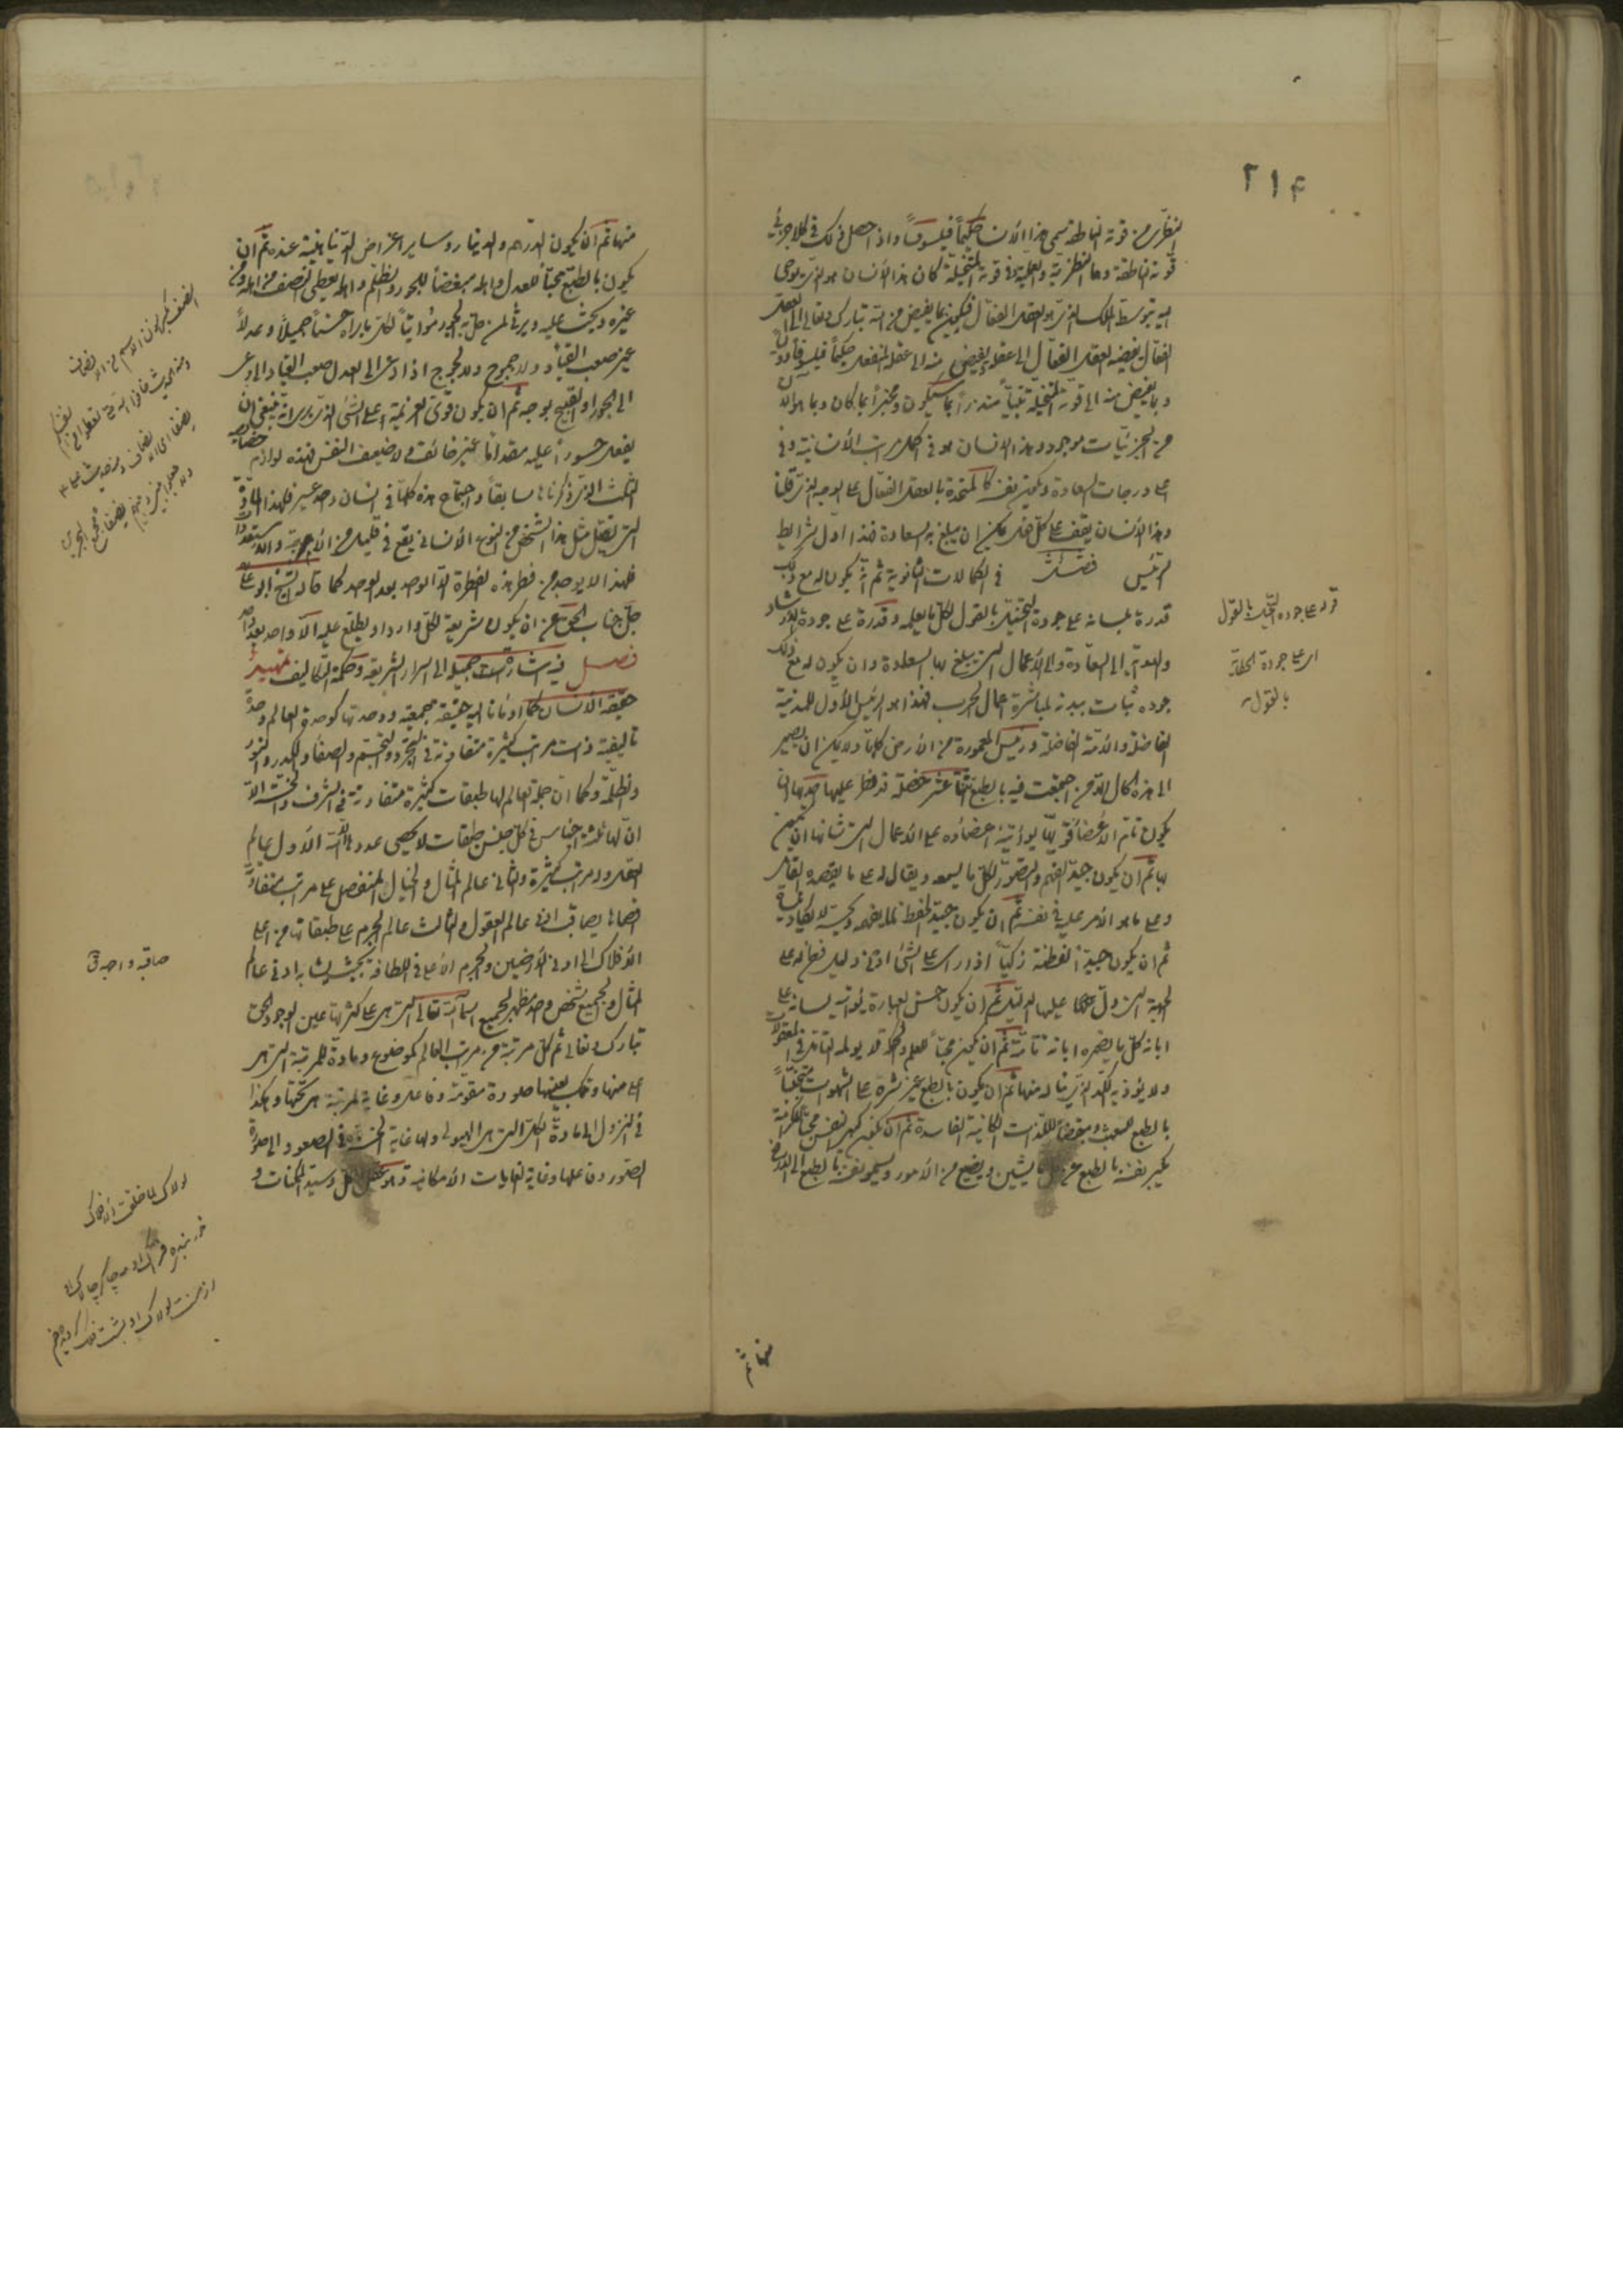 ٢١٤
النظرى من قوته الناطقة سمى هذا الانسان حكيماً فيلسوفاً واذا حصل ذلك فى كلا جزئى
قوته الناطقة وهما النظرية والعملية وفى قوته المتخيلة كان هذا الانسان هو الذى يوحى
اليه بتوسط الملك الذى هو العقل الفعال فيكون بما يفيض من الله تبارك وتعالى الى العقل
الفعال يفيضه العقل الفعال الى عقله يفيض منه الى عقله المنفعل حكيماً فيلسوفاً
وبما يفيض منه الى قوته المتخيلة نبياً منذراً بما سيكون ومخبراً بما كان وبما هو الآن
من الجزئيات موجود وهذا الانسان هو فى اكمل مراتب الانسانية وفى
اعلى درجات السعادة ويكون نفسه كالمتحدة بالعقل الفعال على الوجه الذى قلنا
وهذا الانسان يقف على كل فعل يمكن ان يبلغ به السعادة فهذا اول شرائط
الرئيس فصل فى الكمالات الثانوية ثم انه يكون له مع ذلك
قدرة بلسانه على جودة التخيل بالقول لكل ما يعلمه وقدرة على جودة الارشاد
والهداية الى السعادة والى الاعمال التى يبلغ بها السعادة وان يكون له مع ذلك
جودة ثبات ببدنه لمباشرة اعمال الحرب فهذا هو الرئيس الاول للمدينة
الفاضلة والامة الفاضلة ورئيس المعمورة من الارض كلها ولا يمكن ان يصير
الى هذه الحال الا من اجتمعت فيه بالطبع اثنتا عشر خصلة قد فطر عليها احدها ان
يكون تام الاعضاء قويها يواتيه اعضاؤه على الاعمال التى شانها ان يكون
بها ثم ان يكون جيد الفهم والتصور لكل ما يسمعه ويقال له على ما يقصده القائل
وعلى ما هو الامر عليه فى نفسه ثم ان يكون جيد الحفظ لما يفهمه ويحسه لا يكاد ينساه
ثم ان يكون جيد الفطنة زكياً اذا راى على الشئ ادنى دليل فطن له على
الجهة التى دل عليها الدليل ثم ان يكون حسن العبارة يؤاتيه لسانه على
ابانة كل ما يضمره ابانة تامة ثم ان يكون محباً للعلم والحكمة لا يولمه التامل فى المعقولات
ولا يؤذيه الكد الذى يناله منها ثم ان يكون بالطبع غير شره على الشهوات متجنباً
بالطبع اللعب ومبغضاً للذات الكائنة الفاسدة ثم ان يكون كبير النفس محباً للكرامة
يكبر نفسه بالطبع عن كل ما يشين ويضيع من الامور ويسمو نفسه بالطبع الى الارفع
منها ثم
قوله على جودة التخيل بالقول
اى على جودة الحكاية
بالقول
منها ثم ان يكون الدرهم والدينار وساير اعراض الدنيا هينة عنده ثم ان
يكون بالطبع محباً للعدل واهله مبغضاً للجور والظلم واهله يعطى النصف من اهله ومن
غيره ويحث عليه ويرثى لمن حل به الجور مؤاتياً لكل ما يراه حسناً جميلاً وعدلاً
غير صعب القياد ولا جموح ولا لجوج اذا دعى الى العدل صعب القياد اذا دعى
الى الجور او القبيح بوجه ثم ان يكون قوى العزيمة على الشئ الذى يرى انه ينبغى ان
يفعل جسوراً عليه مقداماً غير خائف ولا ضعيف النفس فهذه لوازم خصال
الثلث الذى ذكرناها سابقاً واجتماع هذه كلها فى انسان واحد عسير فلهذا المادة
التى تقبل مثل هذا الشخص من النوع الانسانى يقع فى قليل من الامزجة والاستعدادات
فلهذا لا يوجد من فطر هذه الفطرة الا الواحد بعد الواحد كما قاله الشيخ ابو على
جل جناب الحق عن ان يكون شريعة لكل وارد او يطلع عليه الا واحد بعد واحد
فصل فيه اشارة جميلة الى اسرار الشريعة وحكمة التكاليف تمهيد
حقيقة الانسان كما اومانا اليه حقيقة جمعية ووحدتها كوحدة العالم وحدة
تاليفية ذات مراتب كثيرة متفاوتة فى التجرد والتجسم والصفاء والكدر والنور
والظلمة وكما ان جملة العالم لها طبقات كثيرة متفاوتة فى الشرف والخسة الا
ان لها ثلثة اجناس فى كل جنس طبقات لا يحصى عددها الا الله الاول عالم
العقل وله مراتب كثيرة والثانى عالم المثال والخيال المنفصل على مراتب متفاوتة
اقصاها يصاقب ادنى عالم العقول والثالث عالم الجرم على طبقاتها من اعلى
الافلاك الى ادنى الارضين والجرم الاعلى فى اللطافة بحيث يشابه ادنى عالم
المثال والجميع شخص واحد مظهر لجميع اسماء الله تعالى التى هى على كثرتها عين الوجود الحق
تبارك وتعالى ثم كل مرتبة من مراتب العالم كموضوع ومادة للمرتبة التى هى
اعلى منها وتلك بعينها صورة مقومة وفاعل وغاية لمرتبة هى تحتها وهكذا
فى النزول الى مادة الكل التى هى الهيولى ولها غاية الخسة وفى الصعود الى صورة
الصور وفاعلها وغاية الغايات الامكانية وهو عقل الكل وسيد الممكنات و
صاقبه واجهه ق
لولاك لما خلقت الافلاك